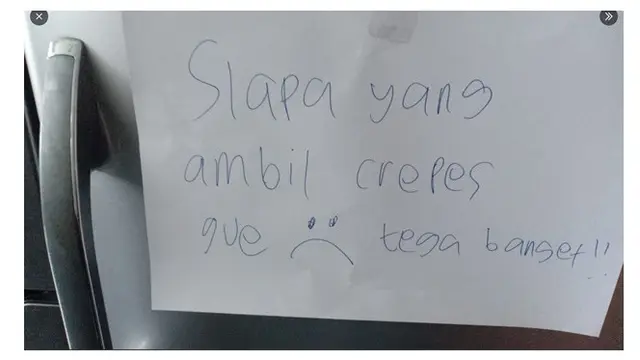 Siapa yang
ambil crepes
gue :( tega banget!!